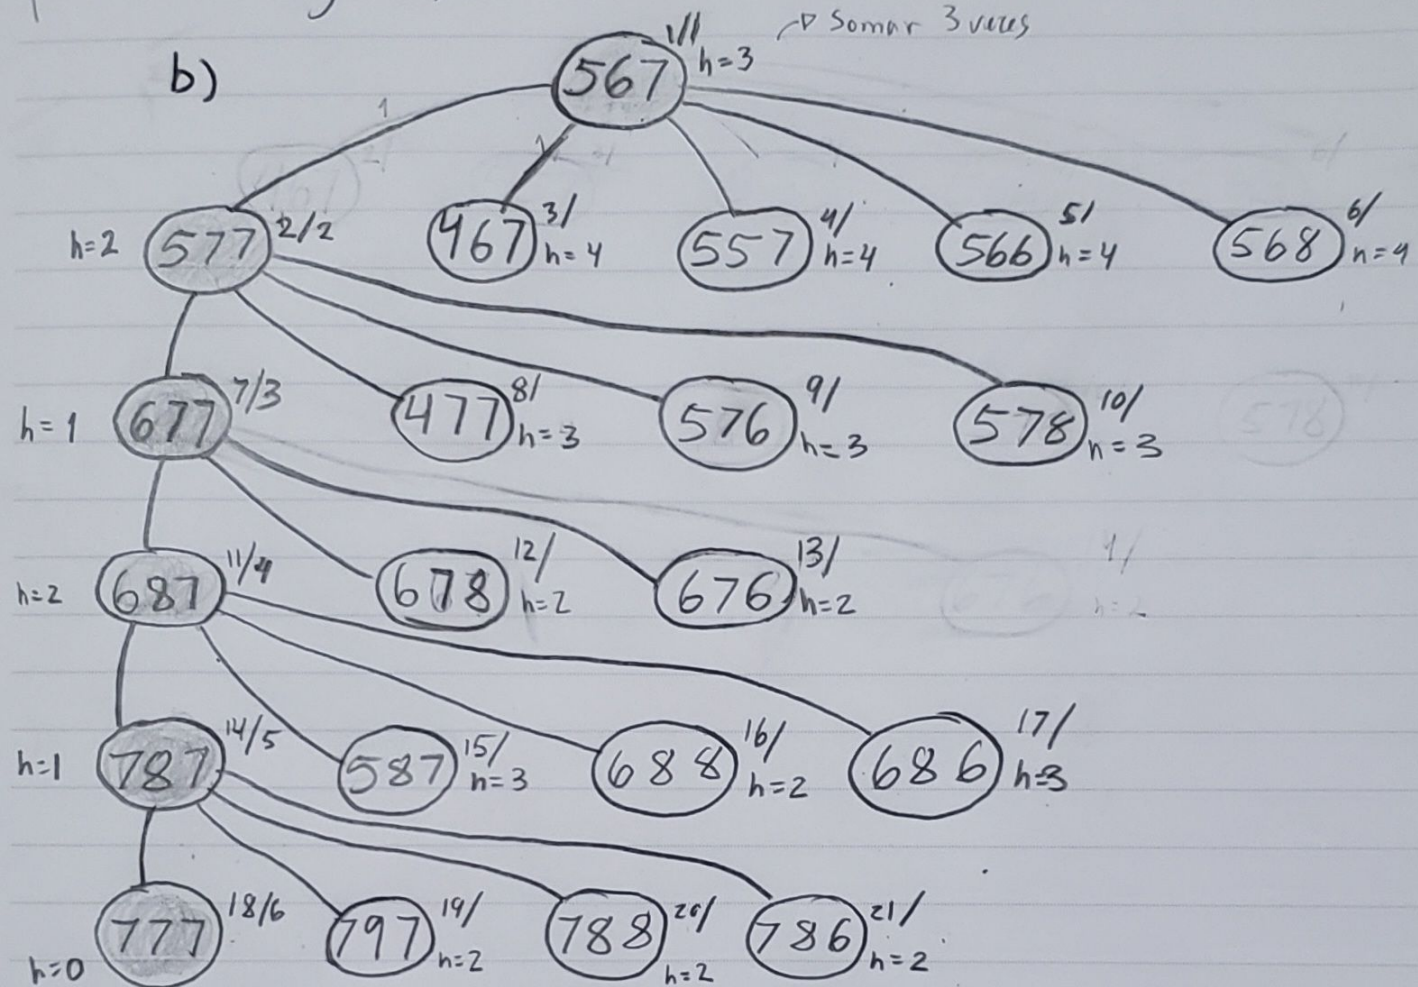 1/1 → Somar 3 vezes
b) 567 h=3
1
h=2 577 2/2 467 3/ h=4 557 4/ h=4 566 5/ h=4 568 6/ h=4
h=1 677 7/3 477 8/ h=3 576 9/ h=3 578 10/ h=3 578
h=2 687 11/4 678 12/ h=2 676 13/ h=2 1/
h=1 787 14/5 587 15/ h=3 688 16/ h=2 686 17/ h=3
h=0 777 18/6 797 19/ h=2 788 20/ h=2 786 21/ h=2